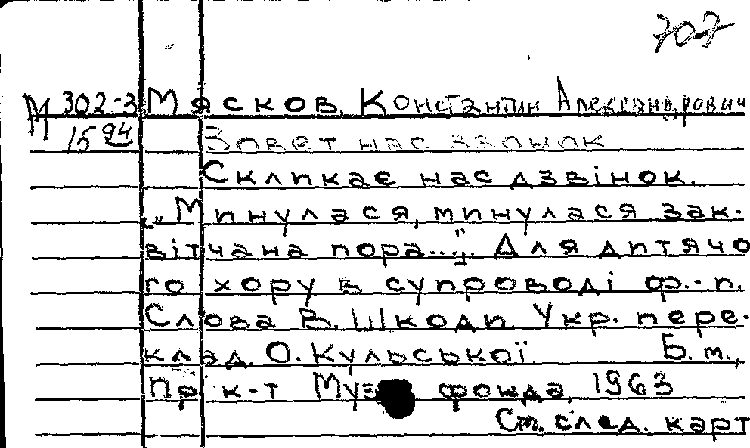 707
М 302-3 Мясков, Константин Александрович
1594 Зовет нас звонок
Скликає нас дзвінок.
„Минулася, минулася зак-
вітчана пора...". Для дитячо
го хору в супроводі ф.-п.
Слова В. Шкоди. Укр. пере-
клад О. Кульської. Б.м.,
Пр к-т фонда, 1963
См. след. карт